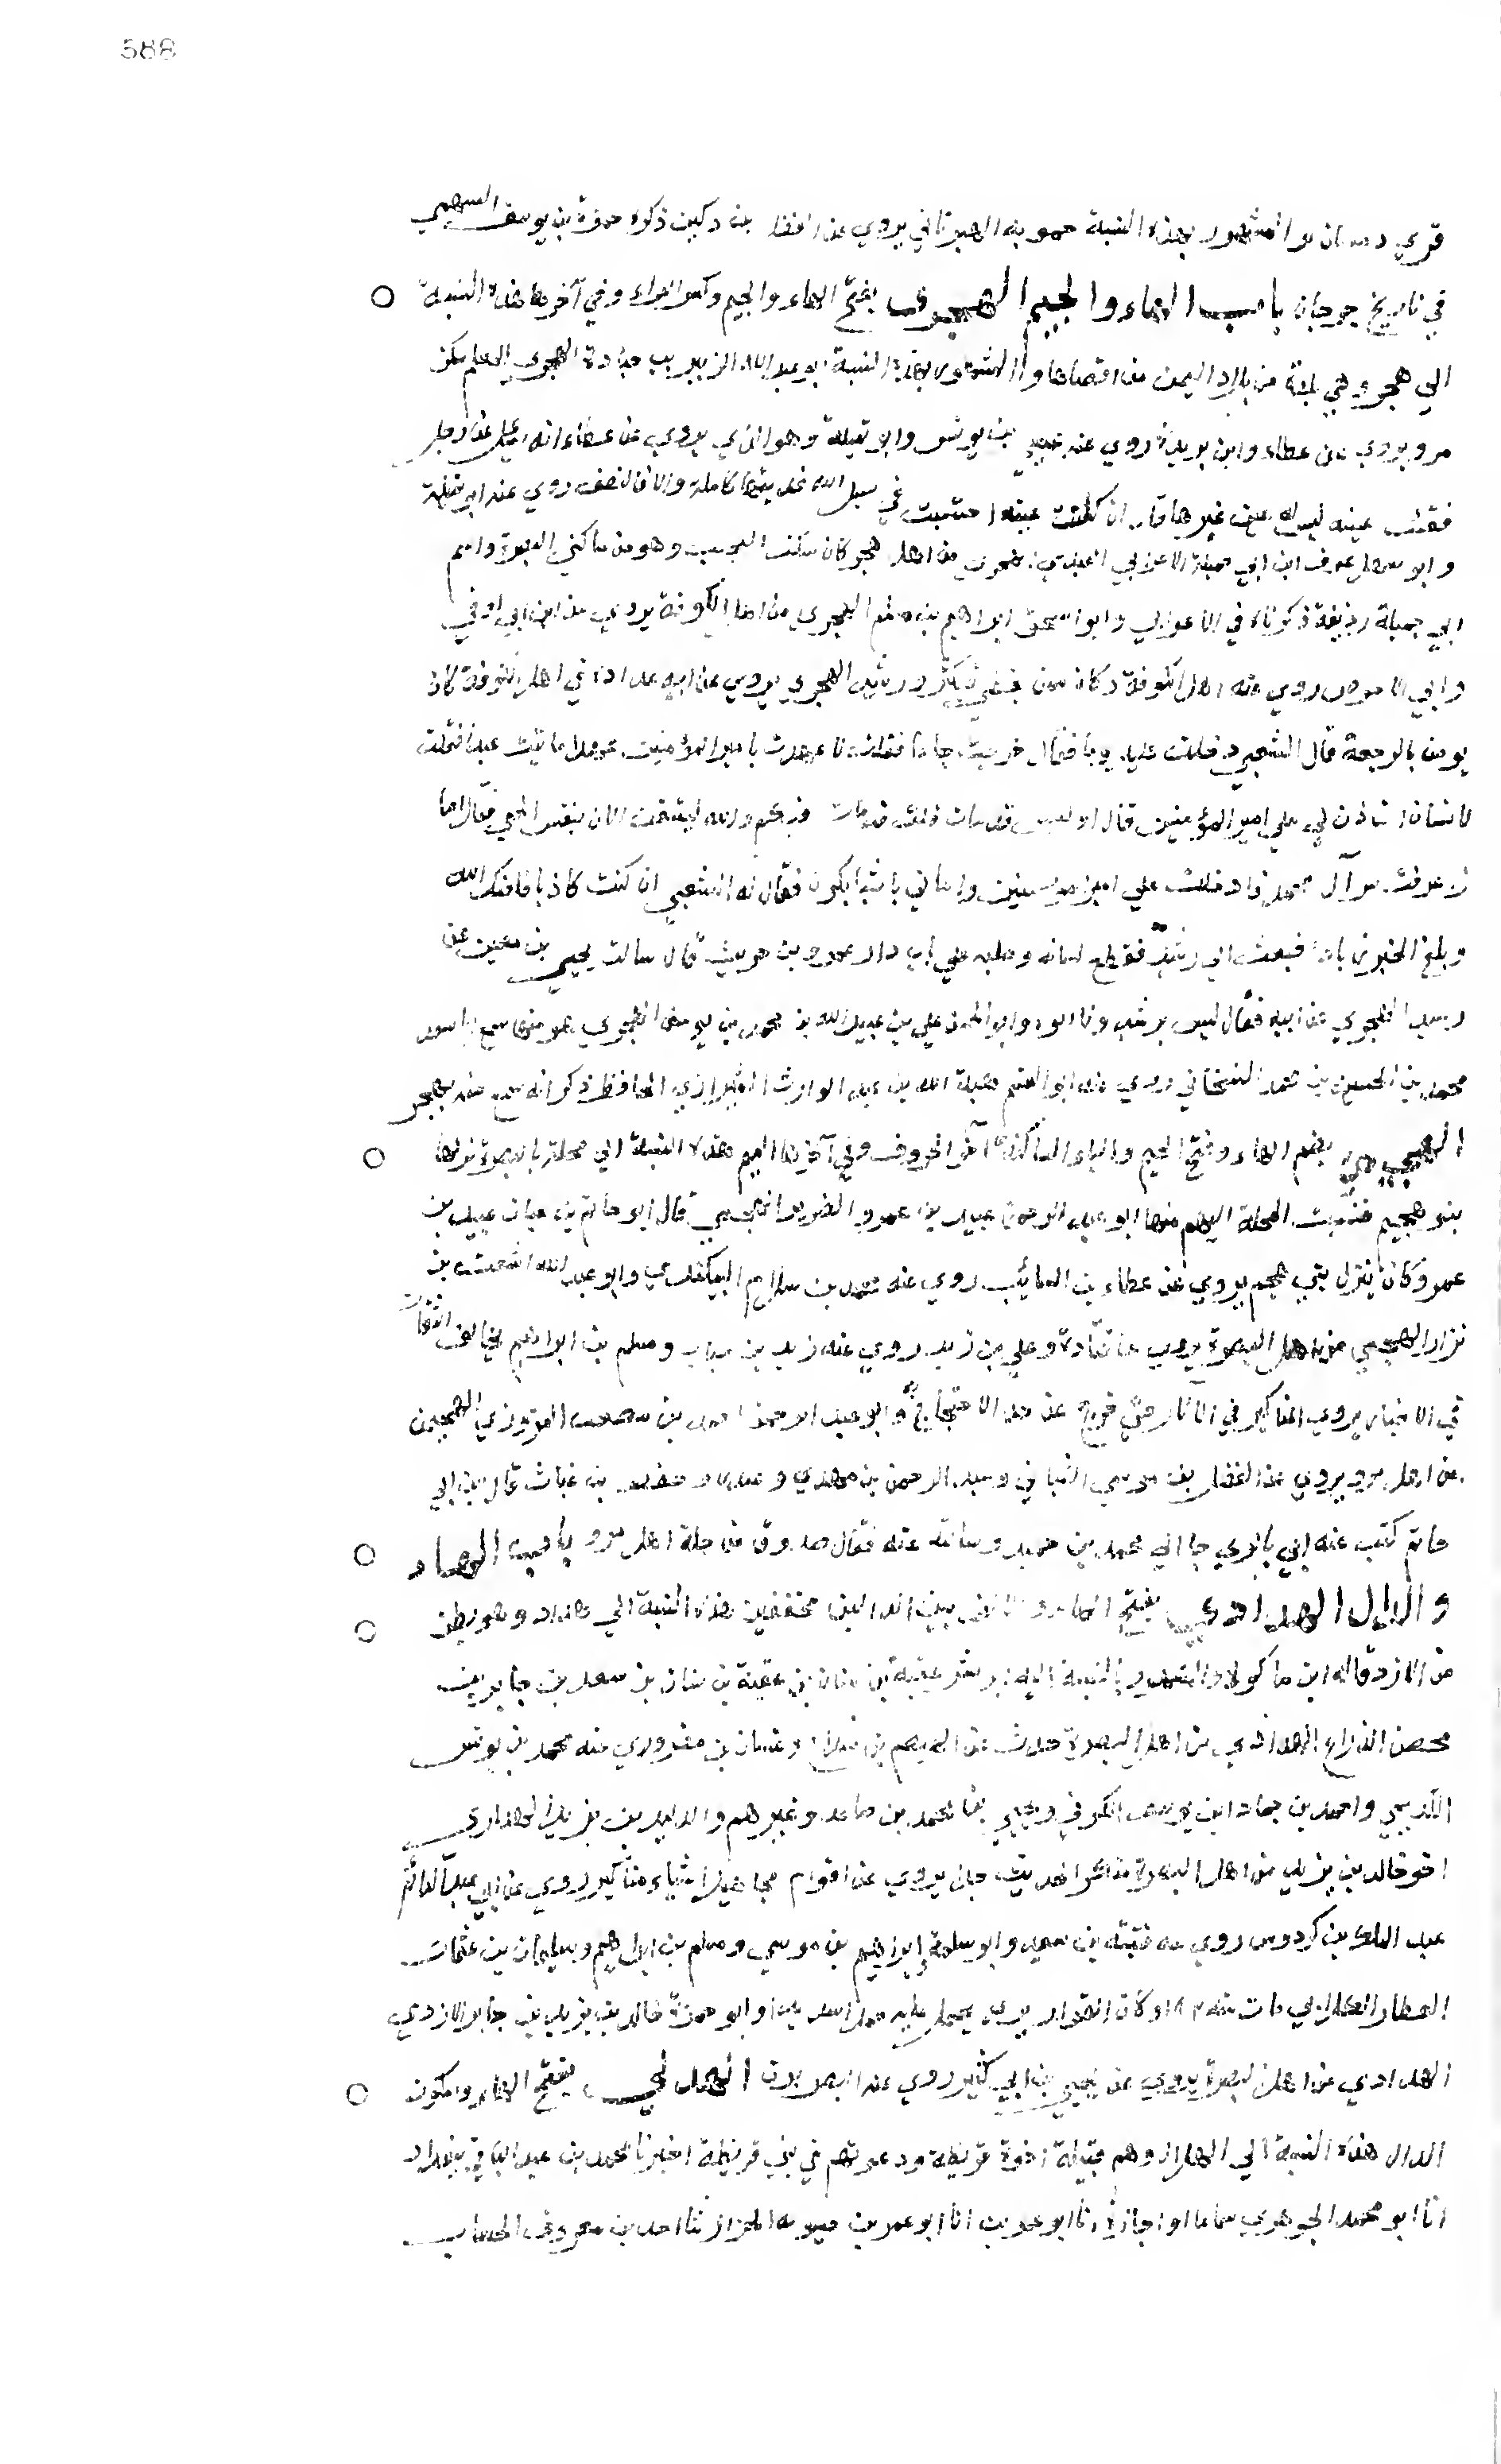 588
قري دهستان والمشهور بهذه النسبة حمويه الهبرتاني يروي عن الفضل بن دكين ذكره حمزة بن يوسف السهمي
في تاريخ جرجان باب الهاء والجيم الهجري بفتح الهاء والجيم وكسر الراء وفي آخرها هذه النسبة
الي هجر وهي بلدة من بلاد اليمن من اقصاها والمشهور بهذه النسبة ابو عبد الله الزبير بن جنادة الهجري المعلم سكن
مرو يروي عن عطاء وابن بريدة روي عنه عيسي بن يونس وابو تميلة وهو الذي يروي عن عطاء انه سئل عن رجل
فقئت عينه ليس له عين غيرها قال ان كانت عينه احتسبت في سبيل الله فديتها كاملة والا فالنصف روي عنه ابو تميلة
وابو سهل عوف ابن ابي جميلة الاعرابي العبدي الهجري من اهل هجر كان سكن البصرة وهو من ساكني البصرة واسم
ابي جميلة رزينة ذكرناه في الاعرابي وابو اسحق ابراهيم بن مسلم الهجري من اهل الكوفة يروي عن ابن ابي اوفي
وابي الاحوص روي عنه اهل الكوفة وكان ممن يخطئ فيكثر ورشيد الهجري يروي عن ابيه عداده في اهل الكوفة كان
يومن بالرجعة قال الشعبي دخلت عليه يوما فقال خرجت حاجا فقلت لاعهدن بامير المؤمنين عهدا فاتيت عليا فقلت
لانسان استاذن لي علي امير المؤمنين قال او ليس قد مات قلت قد مات فيكم والله ليتنفس الان بنفس الحي فقال اما
اذ عرفت سر آل محمد فادخلت علي امير المؤمنين وانباني باشياء تكون فقال له الشعبي ان كنت كاذبا فلعنك الله
وبلغ الخبر زيادا فبعث الي رشيد فقطع لسانه وصلبه علي باب دار عمرو بن حريث قال سالت يحيي بن معين عن
رشيد الهجري عن ابيه فقال ليس برشيد ولا ابوه وابو الحسن علي بن عبيد الله بن محمد بن يوسف الهجري هو منها سمع ابا سعد
محمد بن الحسين بن محمد روي عنه ابو القسم هبة الله بن عبد الوارث الشيرازي الحافظ ذكر انه سمع منه بهجر
الهجيمي بضم الهاء وفتح الجيم والياء الساكنة آخر الحروف وفي آخرها الميم هذه النسبة الي محلة بالبصرة نزلها
بنو هجيم فنسبت المحلة اليهم منها ابو عبد الرحمن عبيد بن عمرو الضرير الهجيمي قال ابو حاتم بن حبان عبيد بن
عمرو كان ينزل بني هجيم يروي عن عطاء بن السائب روي عنه محمد بن سلام البيكندي وابو عبد الله اشعث بن
نزار الهجيمي من اهل البصرة يروي عن قتادة وعلي بن زيد روي عنه زيد بن حباب ومسلم بن ابراهيم يخالف الثقات
في الاخبار يروي المناكير في الآثار حتي خرج عن حد الاحتجاج به وابو عبد الرحمن احمد بن مصعب المروزي الهجيمي
من اهل مرو يروي عن الفضل بن موسي السيناني وعبد الرحمن بن مهدي وحفص بن غياث قال ابن ابي
حاتم كتب عنه ابي بالري جا الي محمد بن حميد وسالته عنه فقال صدوق من جلة اهل مرو باب الهاء
والدال الهدادي بفتح الهاء والالف بين الدالين مخففتين هذه النسبة الي هداد وهو بطن
من الازد قاله ابن ماكولا والمشهور بالنسبة اليه بشر عقبة بن سنان بن عقبة بن سنان بن سعد بن جابر بن
محصن الذارع الهدادي من اهل البصرة حدث عن الهيثم بن شداخ وغسان بن مضر وروي عنه محمد بن يونس
الكديمي واحمد بن حماد ابن يوسف الكوفي ويحيي بن محمد بن صاعد وغيرهم والوليد بن يزيد الهدادي
اخو خالد بن يزيد من اهل البصرة منكر الحديث جدا يروي عن اقوام مجاهيل اشياء مناكير روي عن ابي عبد الدائم
عبد الملك بن كردوس روي عنه قتيبة بن سعيد وابو سلمة ابراهيم بن موسي ومسلم بن ابراهيم وسليمان بن عثمان
العطار الكلابي مات سنة وكان القواريري يحمل عليه حملا شديدا وابو حمزة خالد بن يزيد بن جابر الازدي
الهدادي من اهل البصرة يروي عن يحيي بن ابي كثير روي عنه البصريون الهدلي بفتح الهاء وسكون
الدال هذه النسبة الي الهدل وهم قبيلة اخوة قريظة ودعوتهم في بني قريظة اخبرنا محمد بن عبد الباقي ببغداد
انا ابو محمد الجوهري سماعا او اجازة انا ابو عمر بن حيويه الخزاز ثنا احمد بن معروف الخشاب